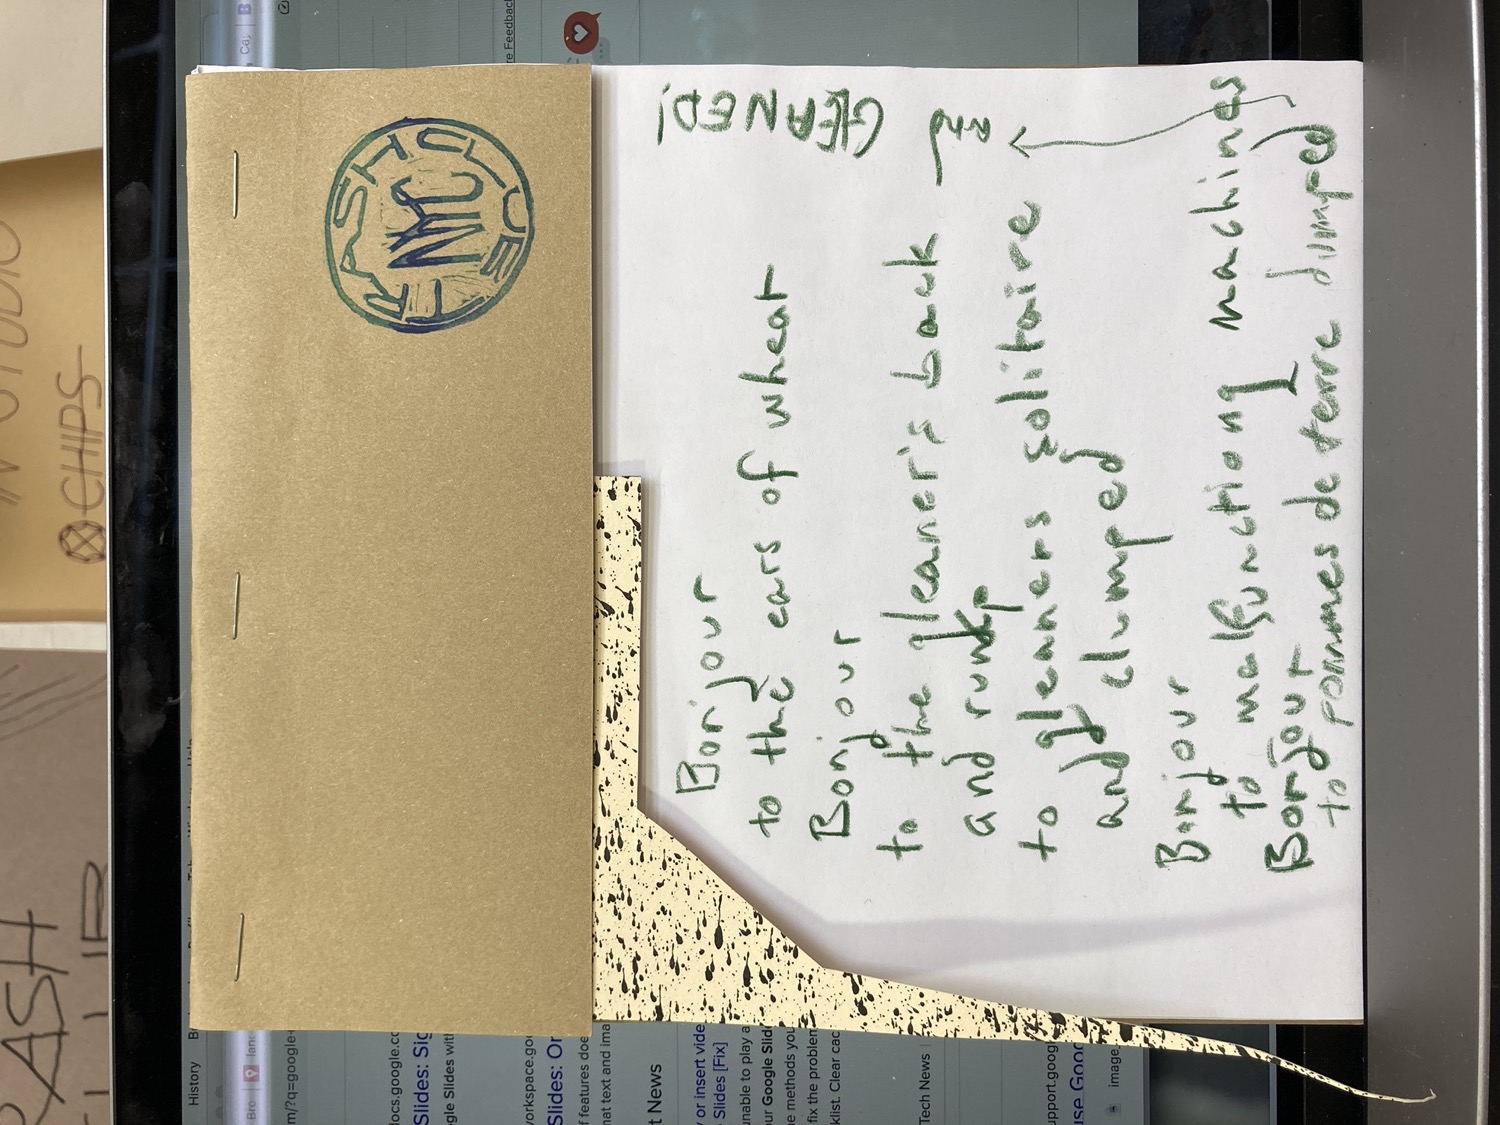 TRASH CLUE
MC
Bonjour
to the ears of wheat
Bonjour
to the gleaner's back
and rump
to gleaners solitaire
and clumped
Bonjour
to malfunctiong machines
Bonjour
to pommes de terre dumped
GLEANED!
CHIPS
History
docs.google.co
Slides: Sig
gle Slides with
workspace.goo
Slides: Or
f features doe
nat text and ima
t News
y or insert vide
Slides [Fix]
unable to play a
our Google Slid
he methods you
fix the problem
klist. Clear cac
Tech News
upport.google
use Goog
image,
re Feedback
m/?q=google+